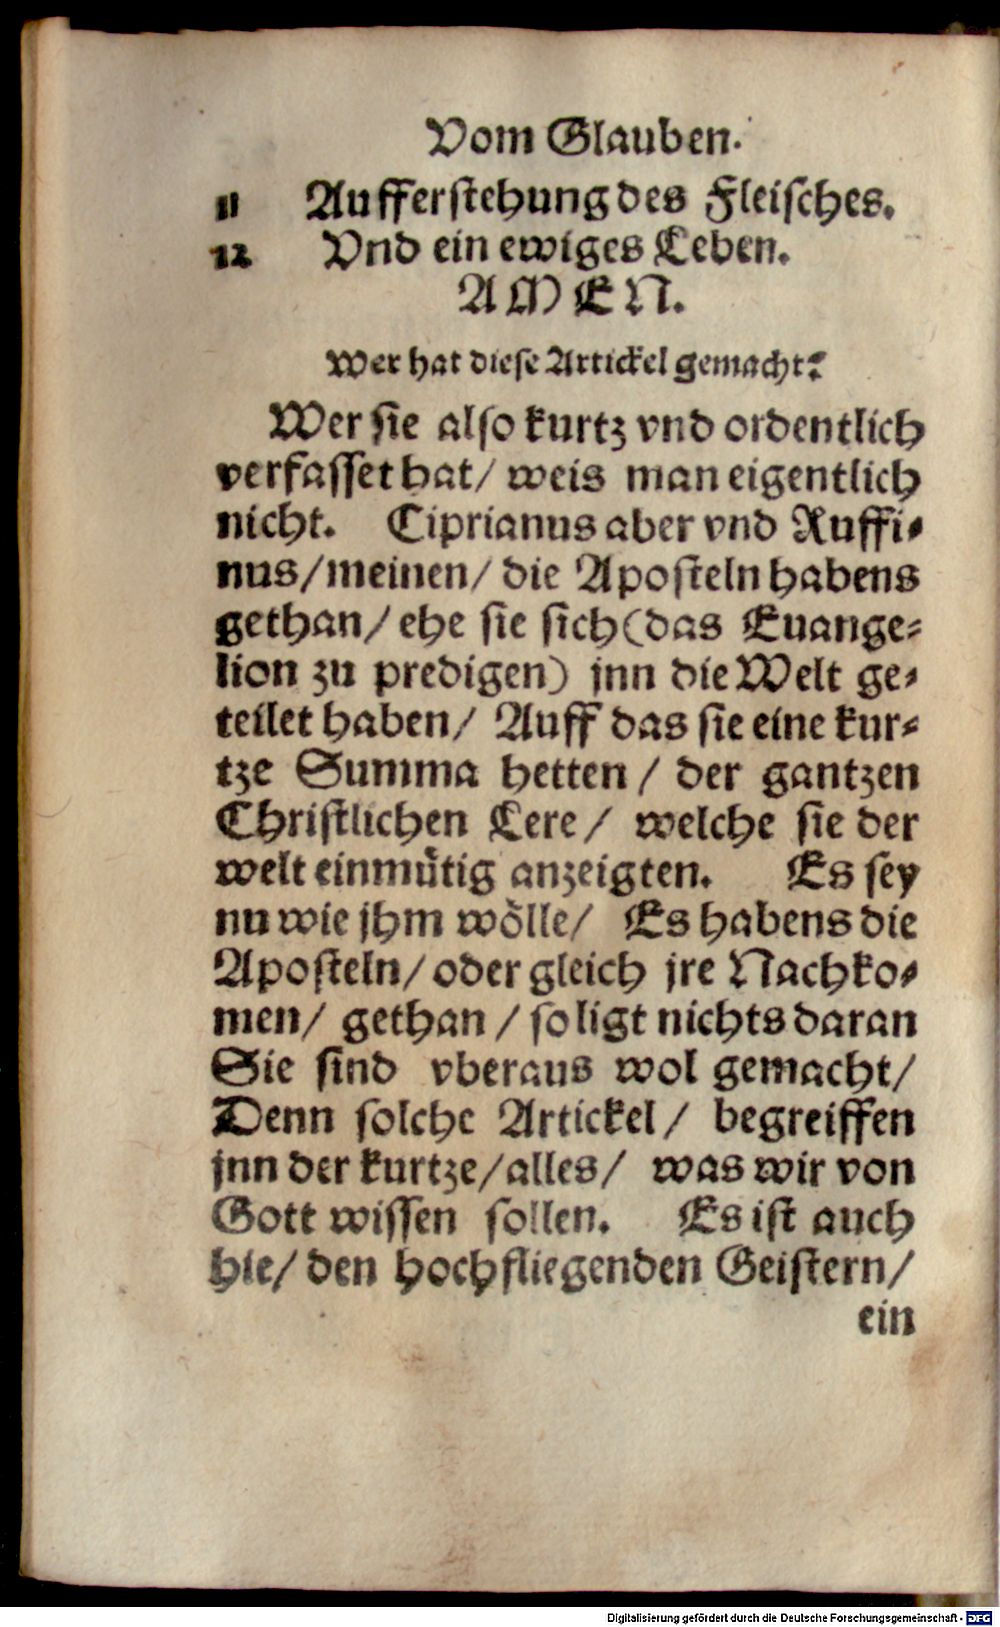 Vom Glauben.
11 Aufferstehung des Fleisches.
12 Vnd ein ewiges Leben.
AMEN.
Wer hat diese Artickel gemacht?
Wer sie also kurtz vnd ordentlich
verfasset hat/ weis man eigentlich
nicht. Ciprianus aber vnd Ruffi⸗
nus/meinen/ die Aposteln habens
gethan/ ehe sie sich (das Euange⸗
lion zu predigen) jnn die Welt ge⸗
teilet haben/ Auff das sie eine kur⸗
tze Summa hetten/ der gantzen
Christlichen Lere/ welche sie der
welt einmuͤtig anzeigten. Es sey
nu wie jhm woͤlle/ Es habens die
Aposteln/ oder gleich jre Nachko⸗
men/ gethan/ so ligt nichts daran
Sie sind vberaus wol gemacht/
Denn solche Artickel/ begreiffen
jnn der kurtze/alles/ was wir von
Gott wissen sollen. Es ist auch
hie/ den hochfliegenden Geistern/
ein
Digitalisierung gefördert durch die Deutsche Forschungsgemeinschaft - DFG